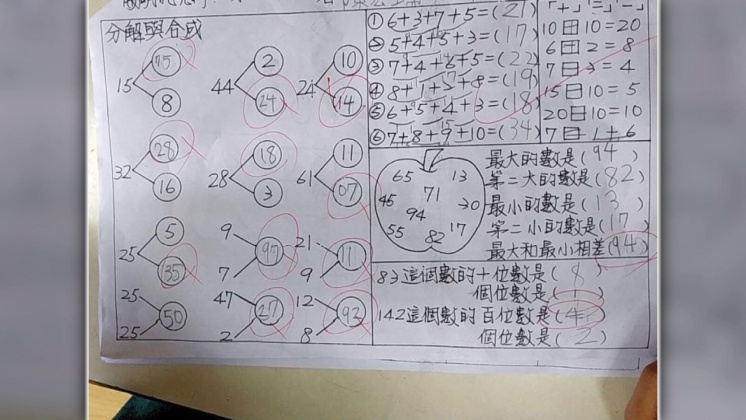 分解與合成
15 75 8
44 2 24
24 10 14
32 28 16
28 18 3
61 11 07
25 5 35
9 7 97
21 9 11
25 25 50
47 2 27
12 8 92
① 6+3+7+5=(21)
② 5+4+5+3=(17)
③ 7+4+6+5=(22)
④ 8+1+2+8=(19)
⑤ 6+5+4+3=(18)
⑥ 7+8+9+10=(34)
「+」「=」「-」
10 日 10=20
6 日 2=8
7 日 3=4
15 日 10=5
20 日 10=10
7 日 1+6
65 13
45 71 30
94
55 82 17
最大的數是(94)
第二大的數是(82)
最小的數是(13)
第二小的數是(17)
最大和最小相差(94)
83這個數的十位數是(8)
個位數是(1)
142這個數的百位數是(4)
個位數是(2)